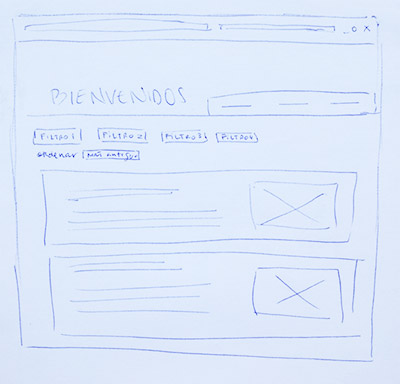 BIENVENIDOS
FILTRO 1 FILTRO 2 FILTRO 3 FILTRO 4
ordenar más antiguo